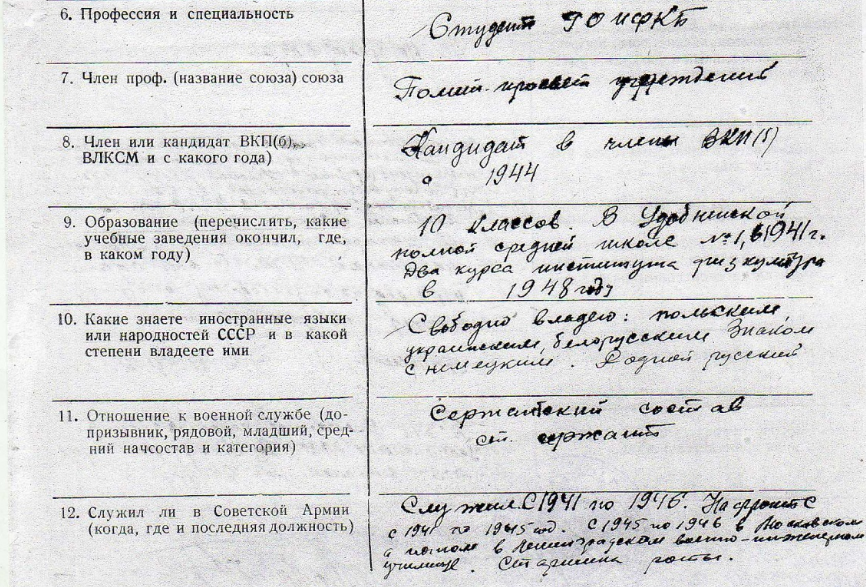 6. Профессия и специальность
Студент ГОИФКБ
7. Член проф. (название союза) союза
Полит-просвет учреждений
8. Член или кандидат ВКП(б),
ВЛКСМ и с какого года)
Кандидат в члены ВКП(б)
с 1944
9. Образование (перечислить, какие
учебные заведения окончил, где,
в каком году)
10 классов. В Удобненской
полной средней школе №1, в 1941 г.
Два курса института физкультуры
в 1948 году
10. Какие знаете иностранные языки
или народностей СССР и в какой
степени владеете ими
Свободно владею: польским,
украинским, белорусским. Знаком
с немецким. Родной русский
11. Отношение к военной службе (до-
призывник, рядовой, младший, сред-
ний начсостав и категория)
Сержантский состав
ст. сержант
12. Служил ли в Советской Армии
(когда, где и последняя должность)
Служил. С 1941 по 1946. На фронте
с 1941 по 1945 год. С 1945 по 1946 в Московском
а потом в Ленинградском военно-инженерном
училище. Старшина роты.